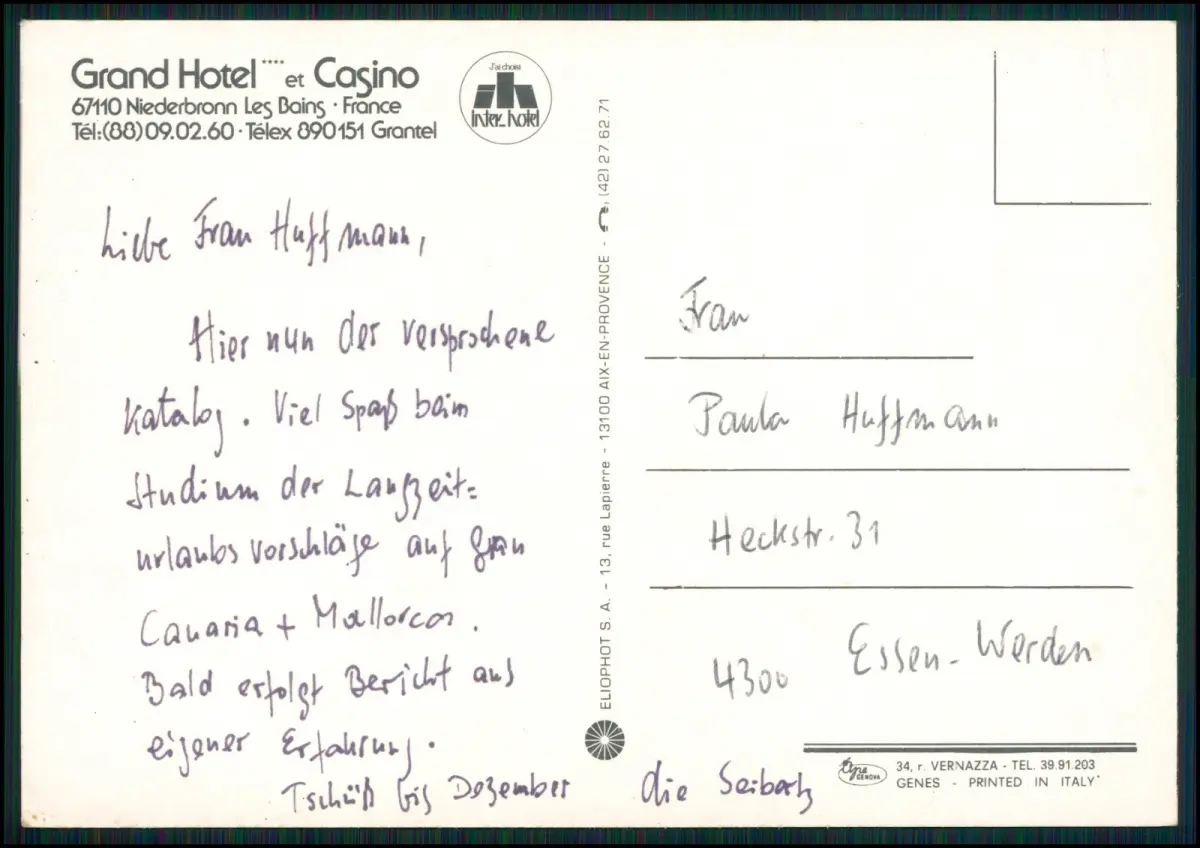 Grand Hotel **** et Casino
67110 Niederbronn Les Bains · France
Tél:(88)09.02.60 · Télex 890151 Grantel
J'ai choisi
inter-hotel
Liebe Frau Huffmann,
Hier nun der versprochene
Katalog. Viel Spaß beim
Studium der Langzeit=
urlaubsvorschläge auf Gran
Canaria + Mallorca.
Bald erfolgt Bericht aus
eigener Erfahrung.
Tschüß bis Dezember die Seibertz
ELIOPHOT S. A. - 13, rue Lapierre - 13100 AIX-EN-PROVENCE - (42) 27.62.71
Frau
Paula Huffmann
Heckstr. 31
4300 Essen-Werden
GENOVA
34, r. VERNAZZA - TEL. 39.91.203
GENES - PRINTED IN ITALY